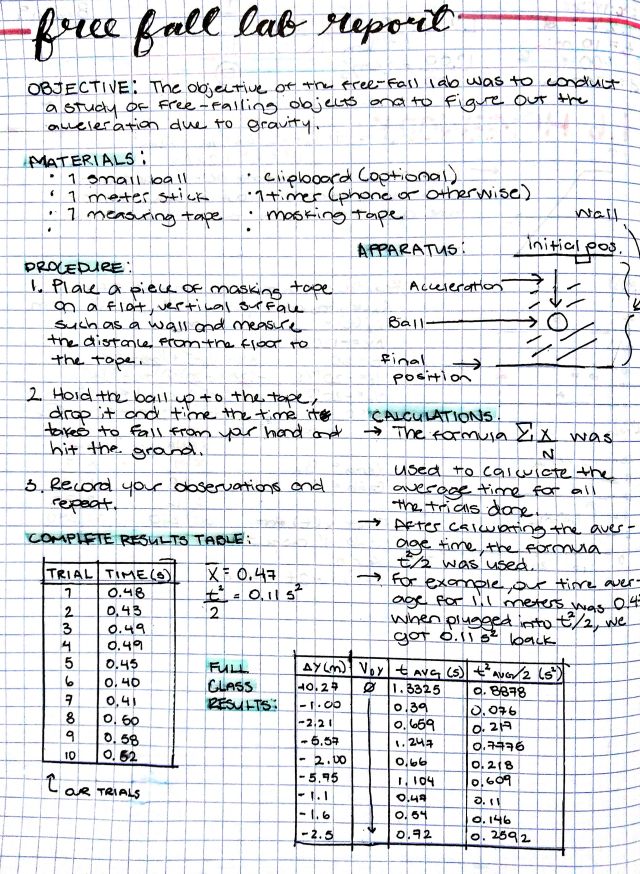 free fall lab report
OBJECTIVE: The objective of the free-fall lab was to conduct
a study of free-falling objects and to figure out the
acceleration due to gravity.
MATERIALS:
· 1 small ball
· 1 meter stick
· 1 measuring tape
·
· clipboard (optional)
· 1 timer (phone or otherwise)
· masking tape
·
PROCEDURE:
1. Place a piece of masking tape
on a flat, vertical surface
such as a wall and measure
the distance from the floor to
the tape.
2. Hold the ball up to the tape,
drop it and time the time it
takes to fall from your hand and
hit the ground.
3. Record your observations and
repeat.
APPARATUS:
wall
initial pos.
Acceleration
Ball
final
position
CALCULATIONS
→ The formula Σ X/N was
used to calculate the
average time for all
the trials done.
→ After calculating the aver-
age time, the formula
t²/2 was used.
→ For example, our time aver-
age for 1.1 meters was 0.4
when plugged into t²/2, we
got 0.11 s² back
COMPLETE RESULTS TABLE:
TRIAL TIME (s)
1 0.48
2 0.43
3 0.49
4 0.49
5 0.45
6 0.40
7 0.41
8 0.50
9 0.58
10 0.52
OUR TRIALS
X̄ = 0.47
t²/2 = 0.11 s²
FULL
CLASS
RESULTS:
ΔY (m) V₀y t AVG (s) t² AVG/2 (s²)
+0.27 Ø 1.3325 0.8878
-1.00 0.39 0.076
-2.21 0.659 0.217
-6.57 1.247 0.7776
-2.00 0.66 0.218
-5.75 1.104 0.609
-1.1 0.47 0.11
-1.6 0.54 0.146
-2.5 0.72 0.2592